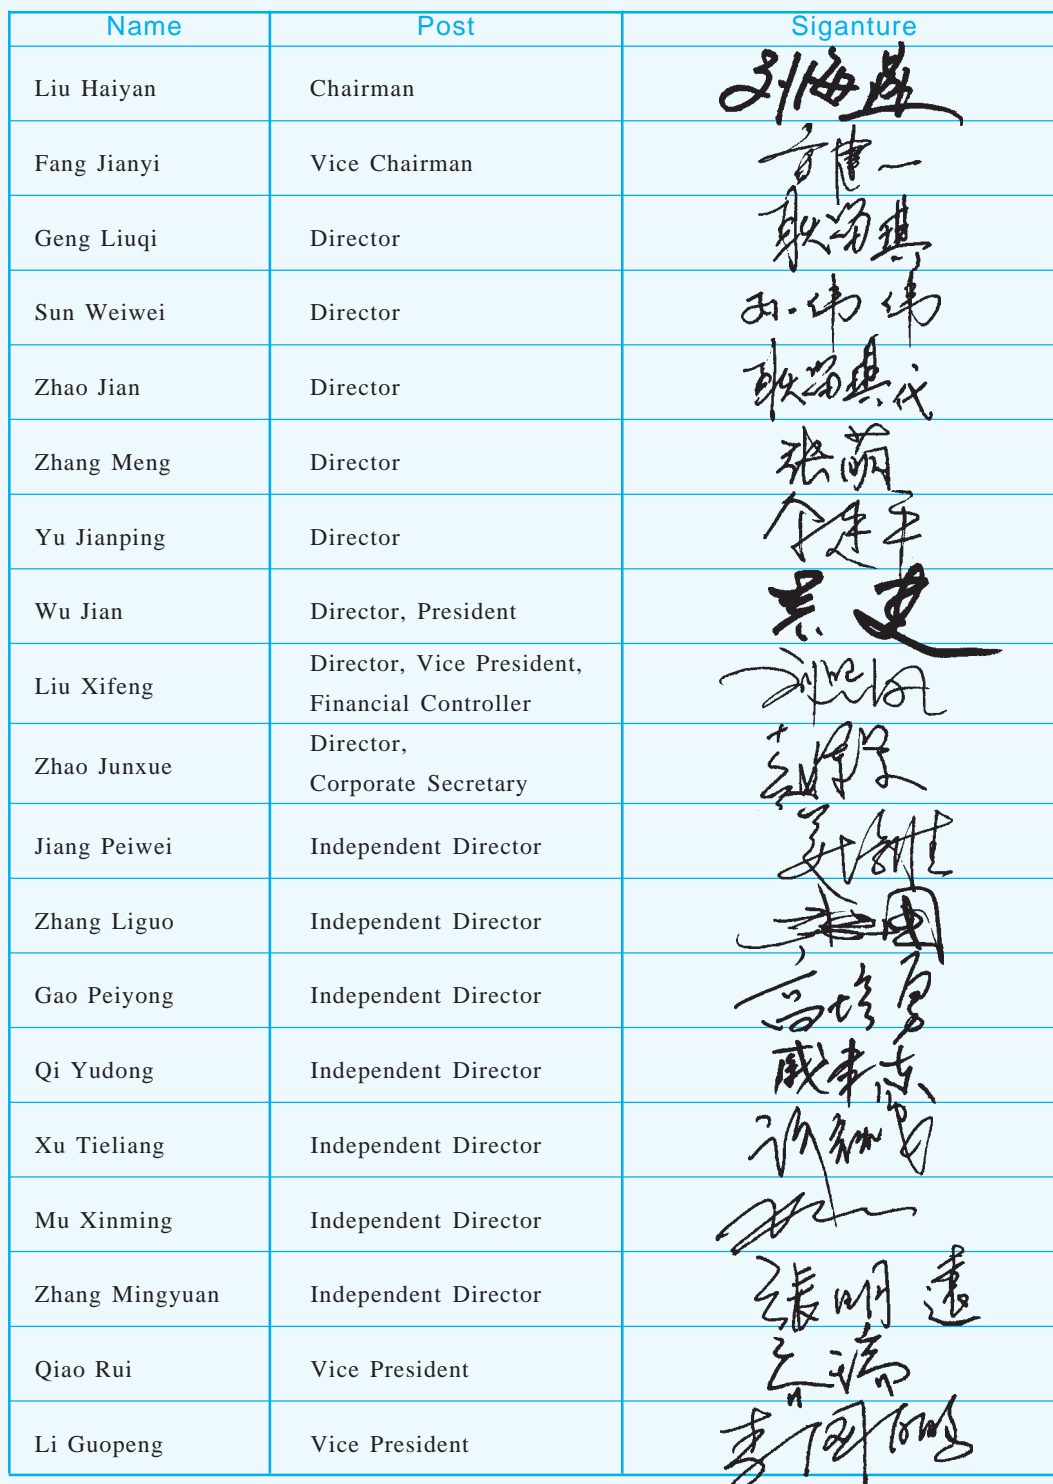 Name Post Siganture
Liu Haiyan Chairman 刘海燕
Fang Jianyi Vice Chairman 方建一
Geng Liuqi Director 耿留琪
Sun Weiwei Director 孙伟伟
Zhao Jian Director 耿留琪代
Zhang Meng Director 张萌
Yu Jianping Director 余建平
Wu Jian Director, President 吴建
Liu Xifeng Director, Vice President,
Financial Controller
Zhao Junxue Director,
Corporate Secretary
Jiang Peiwei Independent Director
Zhang Liguo Independent Director
Gao Peiyong Independent Director 高培勇
Qi Yudong Independent Director 戚聿东
Xu Tieliang Independent Director
Mu Xinming Independent Director
Zhang Mingyuan Independent Director 張明遠
Qiao Rui Vice President
Li Guopeng Vice President 李国鹏